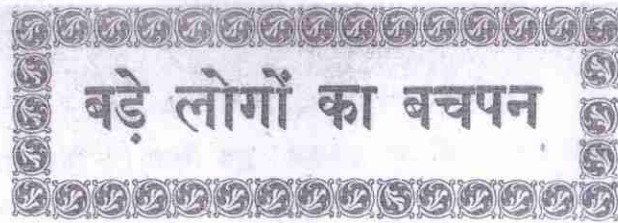 बड़े लोगों का बचपन